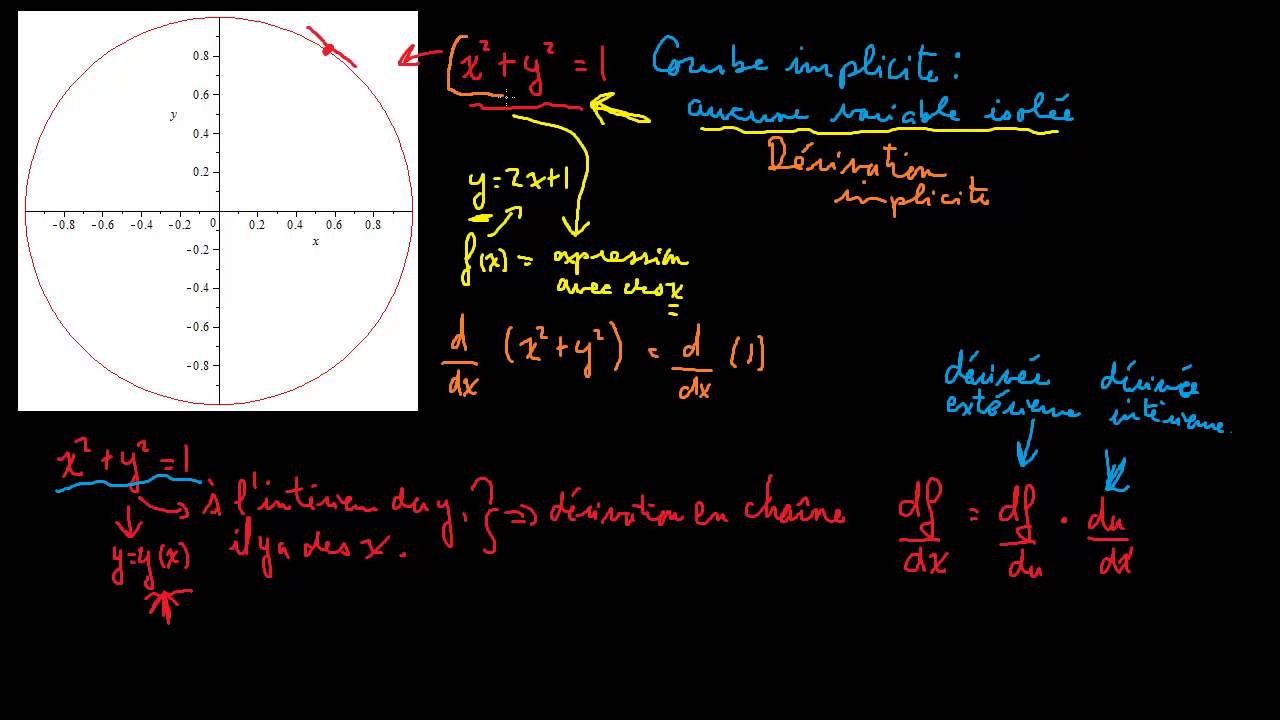 0.8
0.6
y
0.4
0.2
-0.8 -0.6 -0.4 -0.2 0 0.2 0.4 0.6 0.8
x
-0.2
-0.4
-0.6
-0.8
x² + y² = 1
Courbe implicite :
aucune variable isolée
Dérivation
implicite
y = 2x+1
f(x) = expression
avec des x
d/dx (x² + y²) = d/dx (1)
dérivée
extérieure
dérivée
intérieure.
x² + y² = 1
y = y(x)
à l'intérieur du y,
il y a des x.
} ⇒ dérivation en chaîne
df/dx = df/du · du/dx